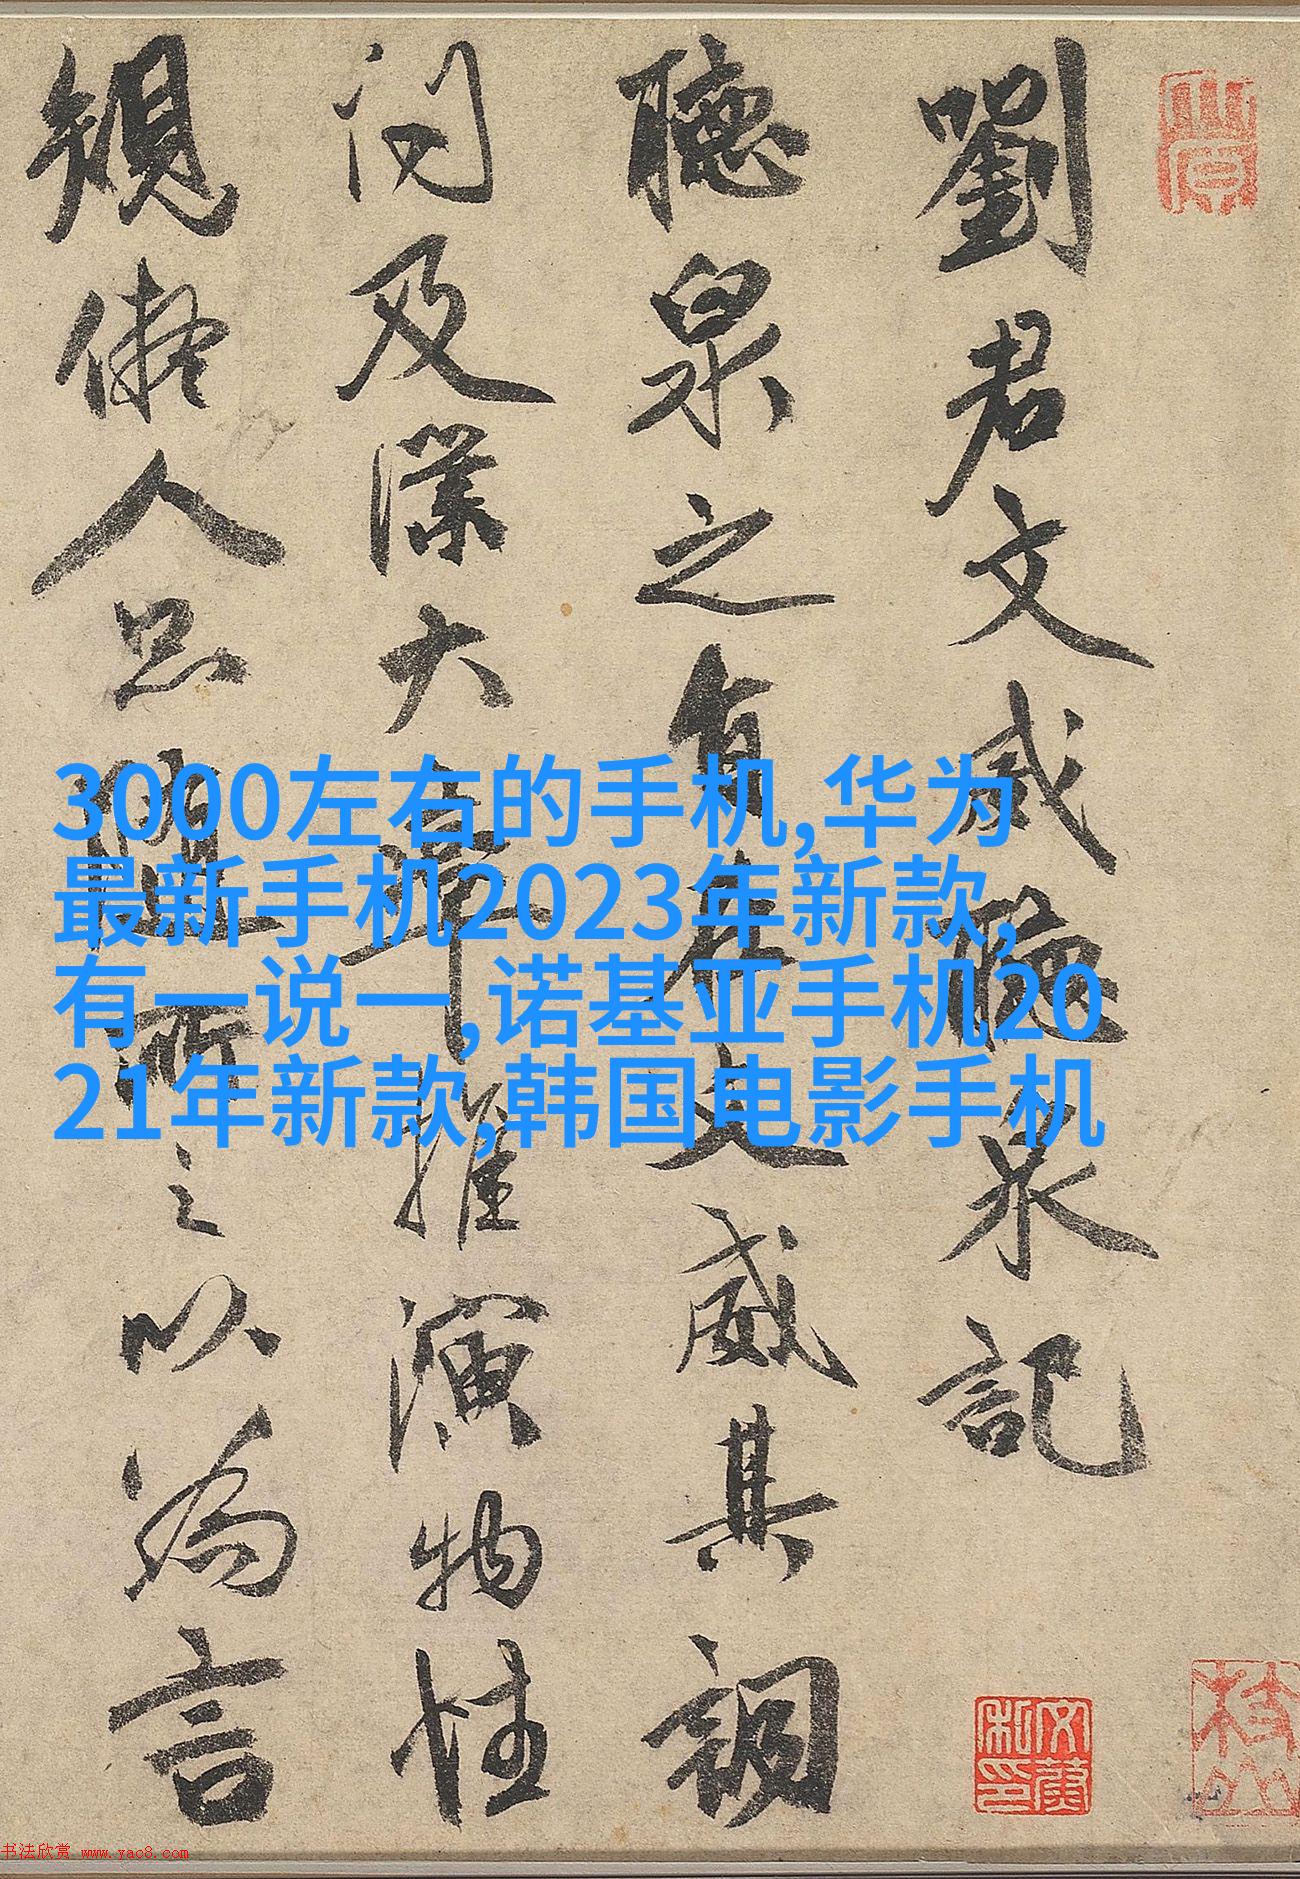 劉君文威聽泉記
聽泉之有在文威其調
閒及
大章推演物性
人品
所之以為言
3000左右的手机,华为
最新手机2023年新款,
有一说一,诺基亚手机20
21年新款,韩国电影手机
书法欣赏 www.yac8.com